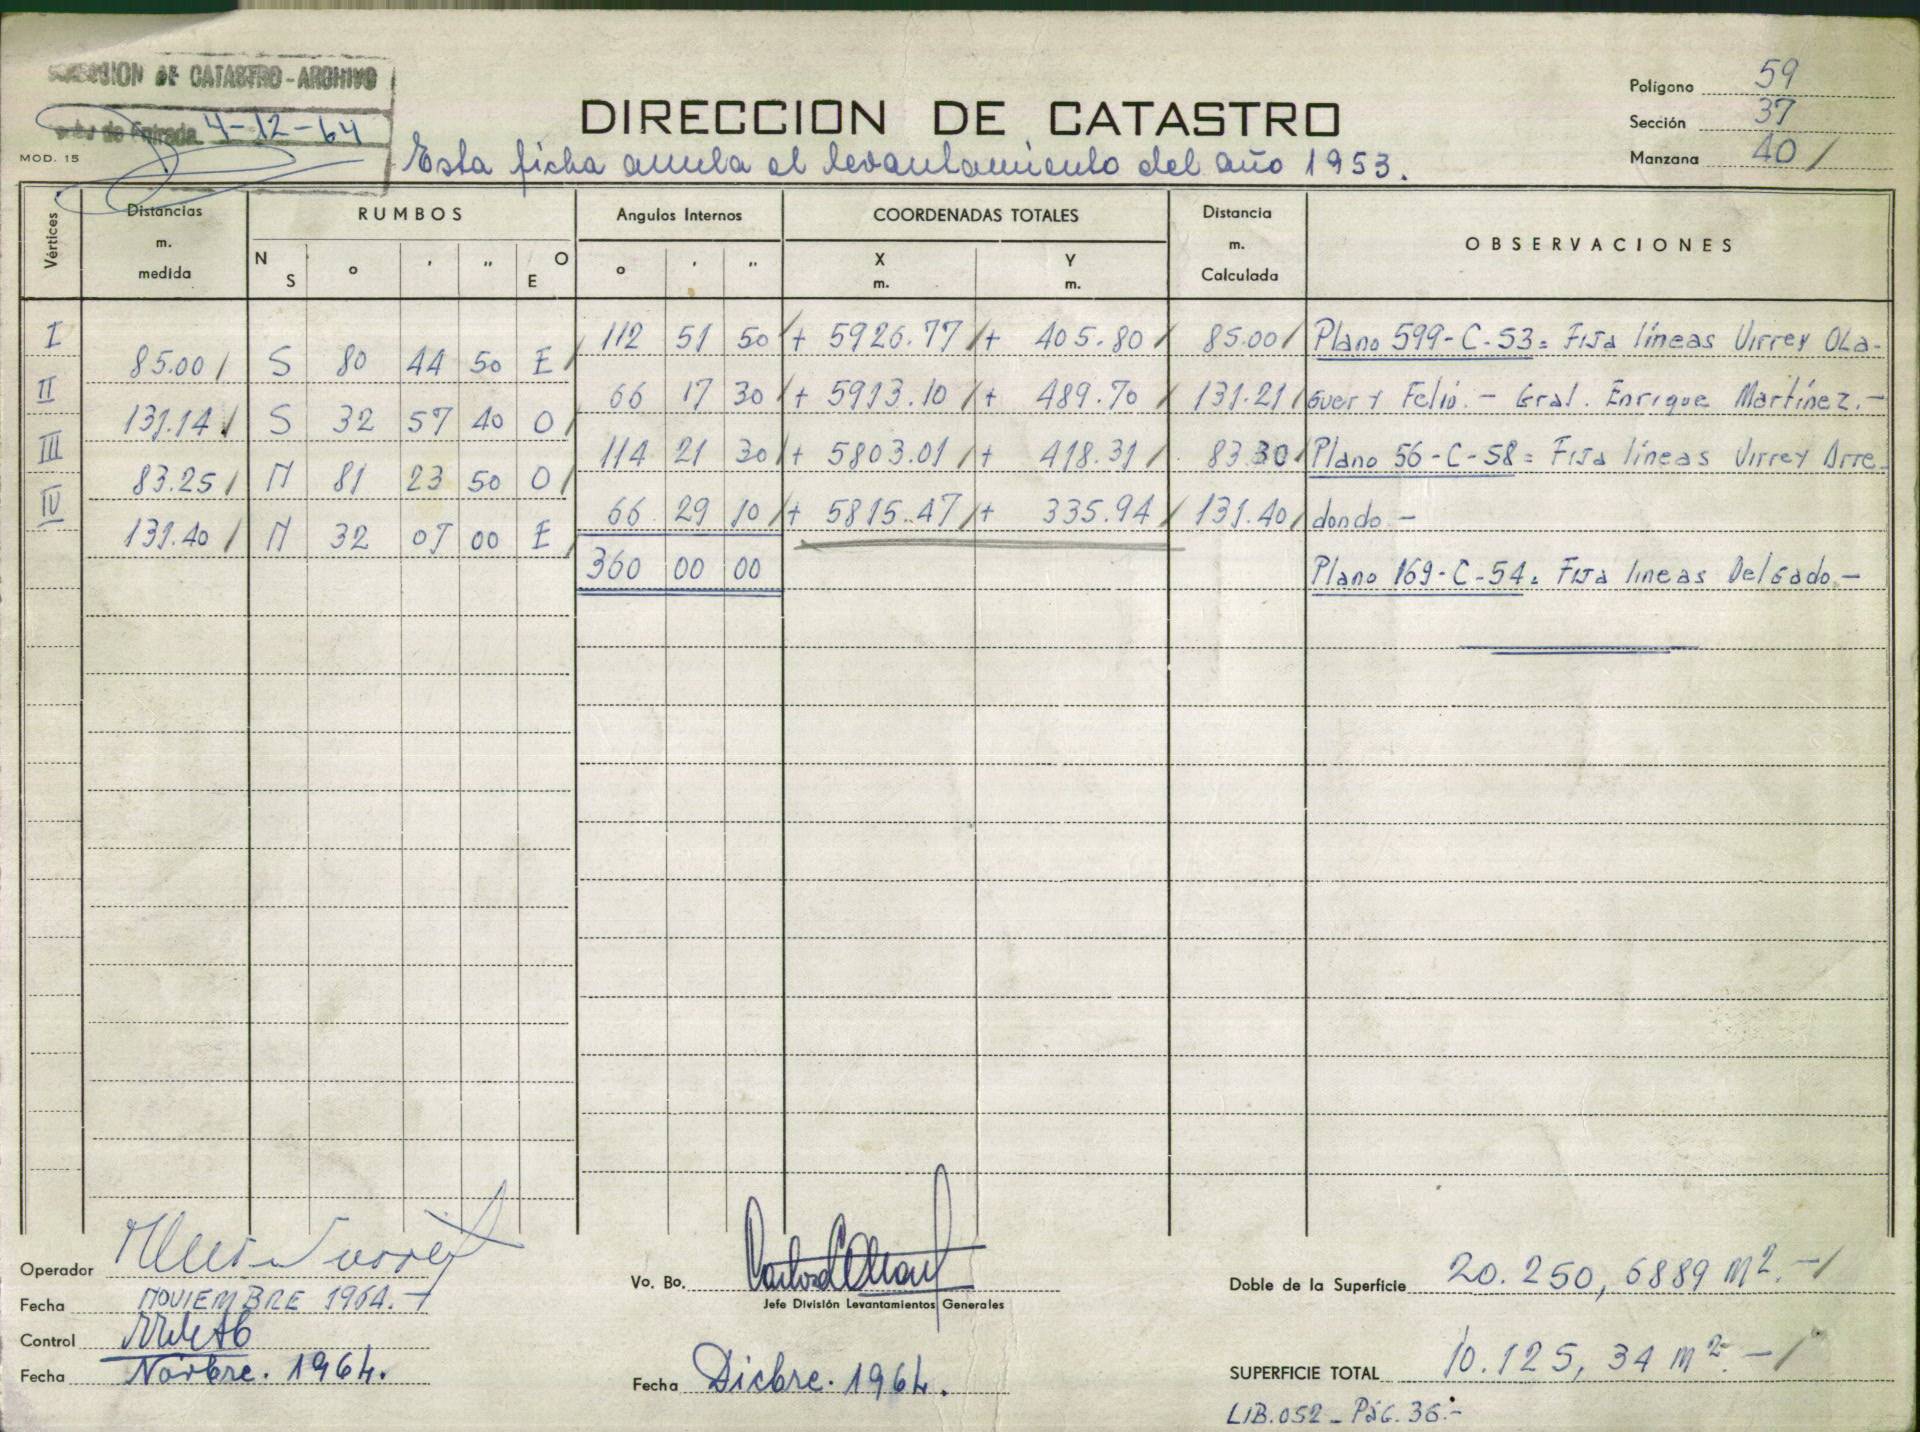 DIRECCION DE CATASTRO - ARCHIVO
de Entrada 4-12-64
MOD. 15
DIRECCION DE CATASTRO
Esta ficha anula el levantamiento del año 1953.
Polígono 59
Sección 37
Manzana 40 /
Vértices
Distancias m. medida
RUMBOS
N S ° ' " O E
Angulos Internos
° ' "
COORDENADAS TOTALES
X m. Y m.
Distancia m. Calculada
OBSERVACIONES
I 112 51 50 / + 5926.77 / + 405.80 / 85.00 / Plano 599-C-53= Fija líneas Virrey Ola-
85.00 / S 80 44 50 E /
II 66 17 30 / + 5913.10 / + 489.70 / 131.21 / guer y Feliú.- Gral. Enrique Martínez.-
131.14 / S 32 57 40 O /
III 114 21 30 / + 5803.01 / + 418.31 / 83.30 / Plano 56-C-58= Fija líneas Virrey Arre-
83.25 / N 81 23 50 O /
IV 66 29 10 / + 5815.47 / + 335.94 / 131.40 / dondo.-
131.40 / N 32 01 00 E /
360 00 00 Plano 169-C-54= Fija lineas Delgado.-
Operador
Fecha NOVIEMBRE 1964.-
Control
Fecha Novbre. 1964.
Vo. Bo.
Jefe División Levantamientos Generales
Fecha Dicbre. 1964.
Doble de la Superficie 20.250,6889 m2.-/
SUPERFICIE TOTAL 10.125,34 m2.-/
LIB.052_ Pág. 36.-